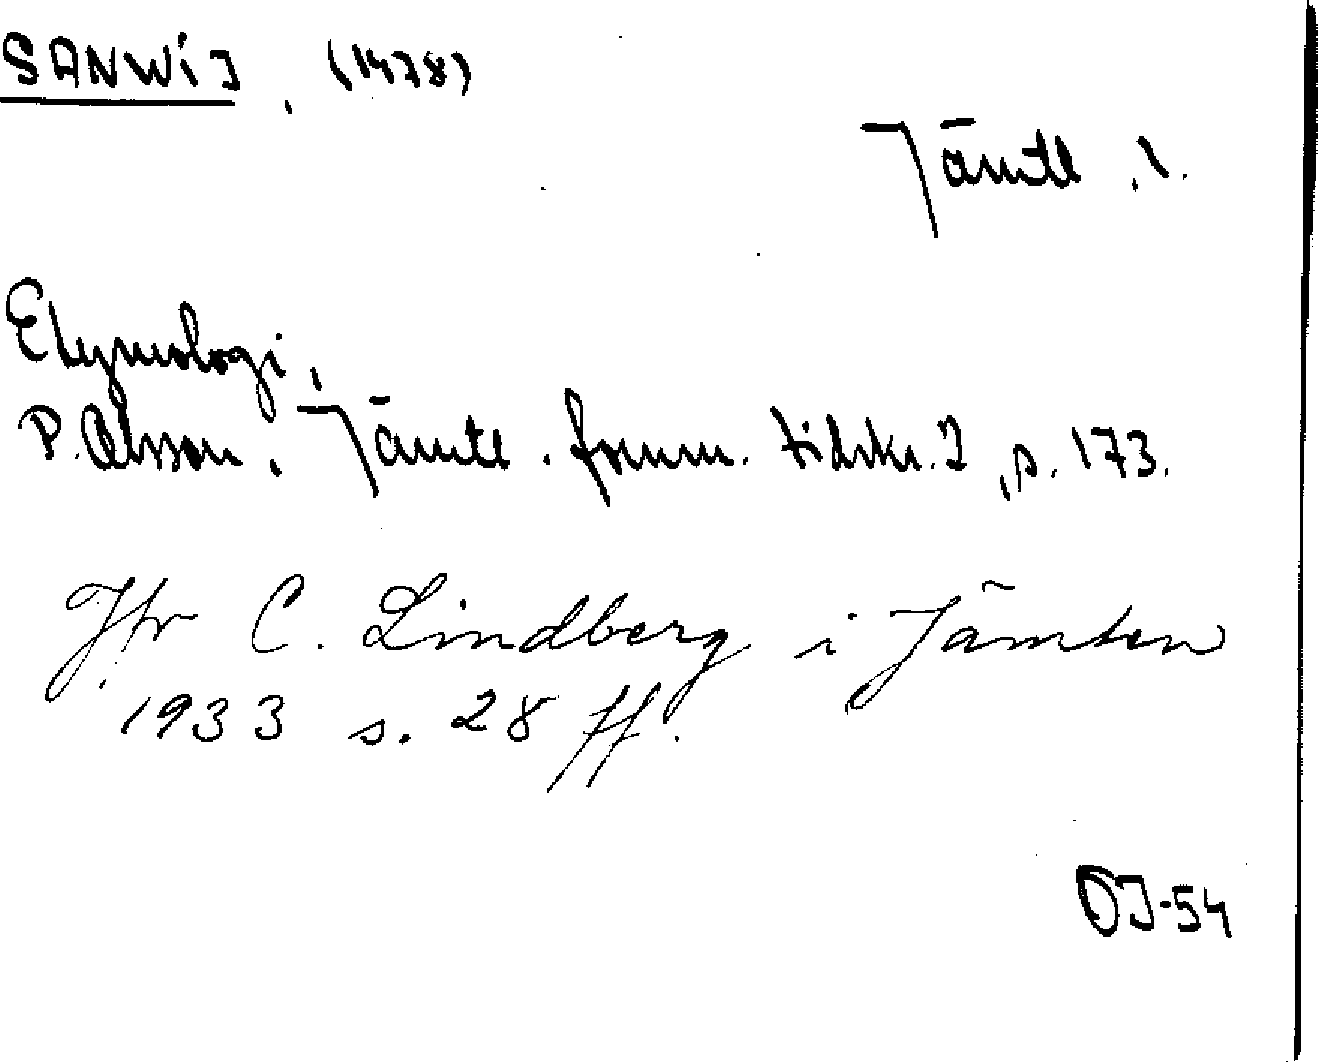 SANWIJ, (1478)
Jämtl. l.
Etymologi,
P. Olsson. Jämtl. fornm. tidskr. 2, s. 173.
Jfr C. Lindberg i Jämten
1933 s. 28 ff.
OJ-54